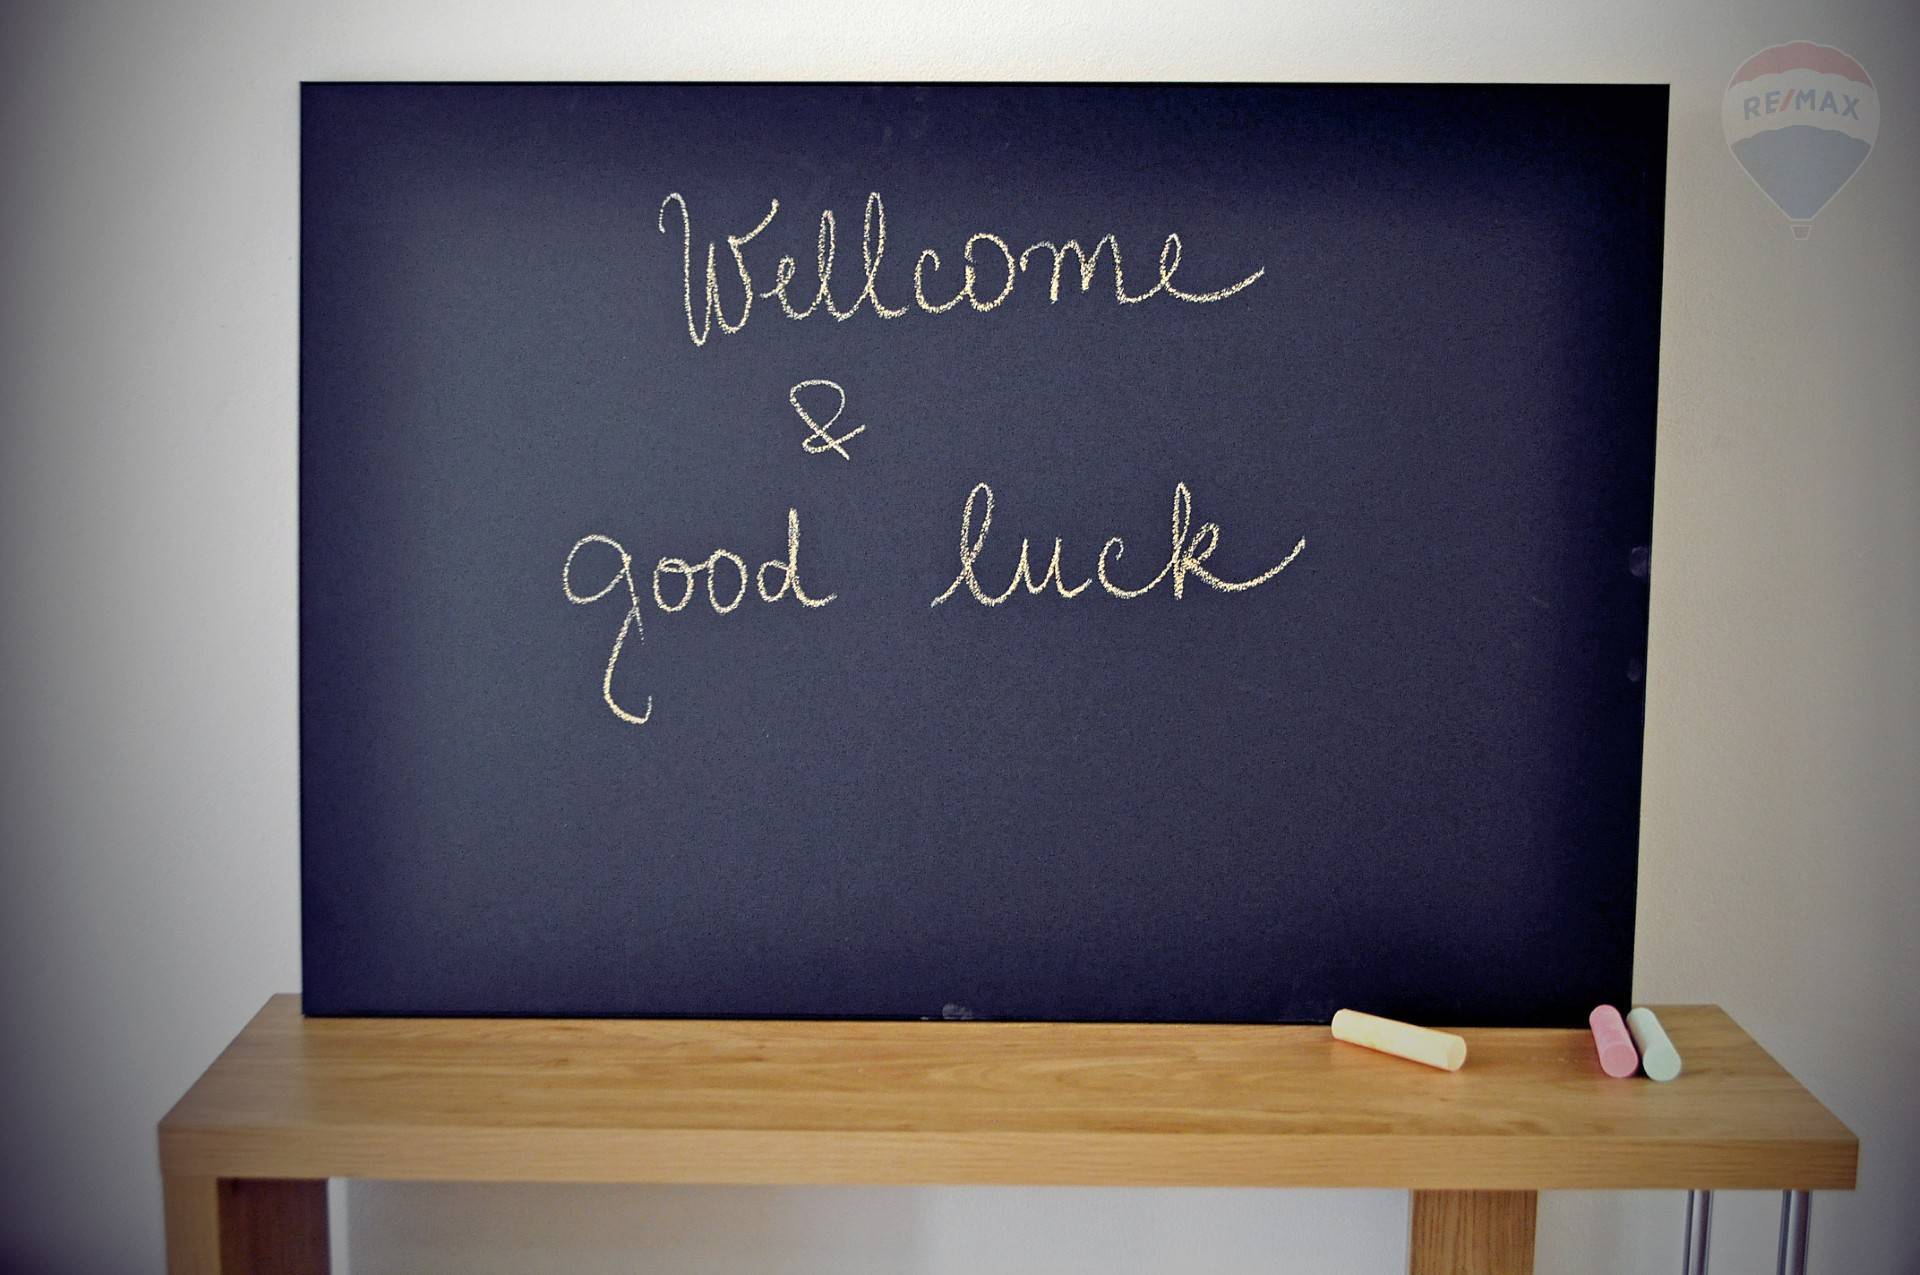 RE/MAX
Wellcome
&
good luck